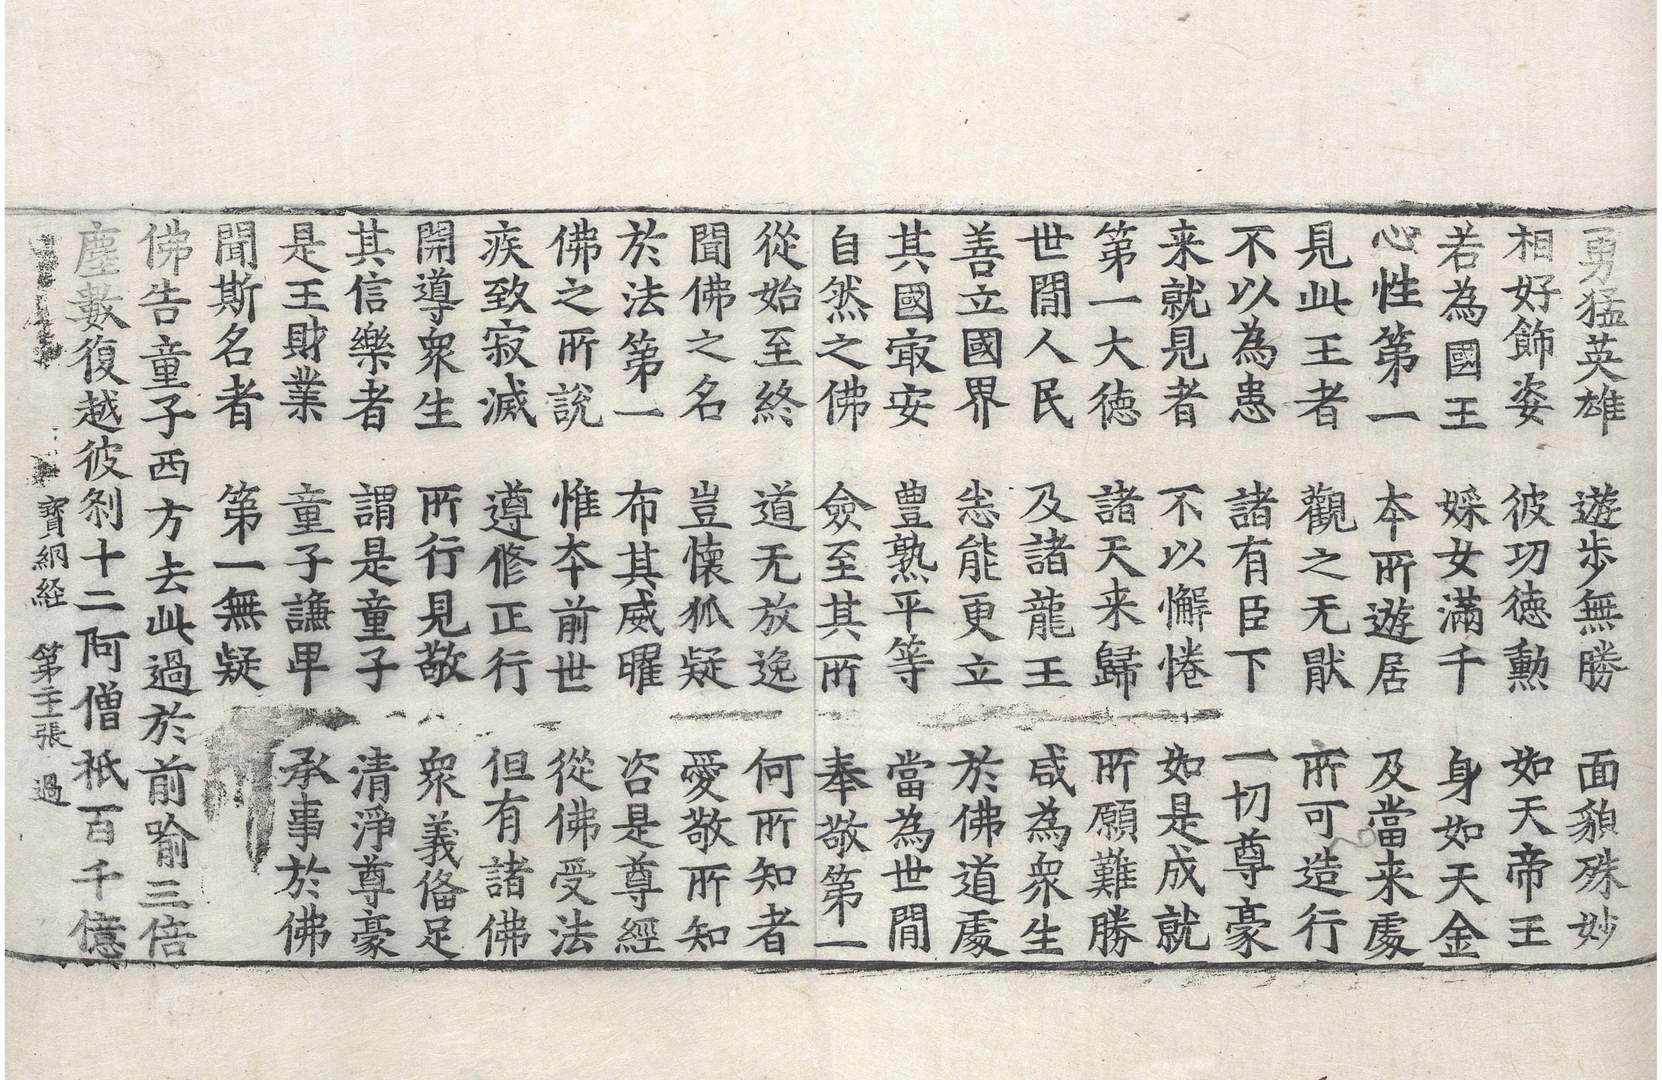 勇猛英雄 遊步無勝 面貌殊妙
相好飾姿 彼功德勳 如天帝王
若為國王 婇女滿千 身如天金
心性第一 本所遊居 及當来處
見此王者 觀之无猒 所可造行
不以為患 諸有臣下 一切尊豪
来就見者 不以懈惓 如是成就
第一大德 諸天来歸 所願難勝
世間人民 及諸龍王 咸為衆生
善立國界 恙能更立 於佛道處
其國㝡安 豊熟平等 當為世間
自然之佛 僉至其所 奉敬第一
從始至終 道无放逸 何所知者
聞佛之名 豈懷狐疑 愛敬所知
於法第一 布其威曜 咨是尊經
佛之所說 惟本前世 從佛受法
疾致寂滅 遵修正行 但有諸佛
開導衆生 所行見敬 衆義俻足
其信樂者 謂是童子 清淨尊豪
是王財業 童子謙卑 承事於佛
聞斯名者 第一無疑
佛告童子西方去此過於前喻三倍
塵數復越彼刹十二阿僧祇百千億
寶網経 第 張 過